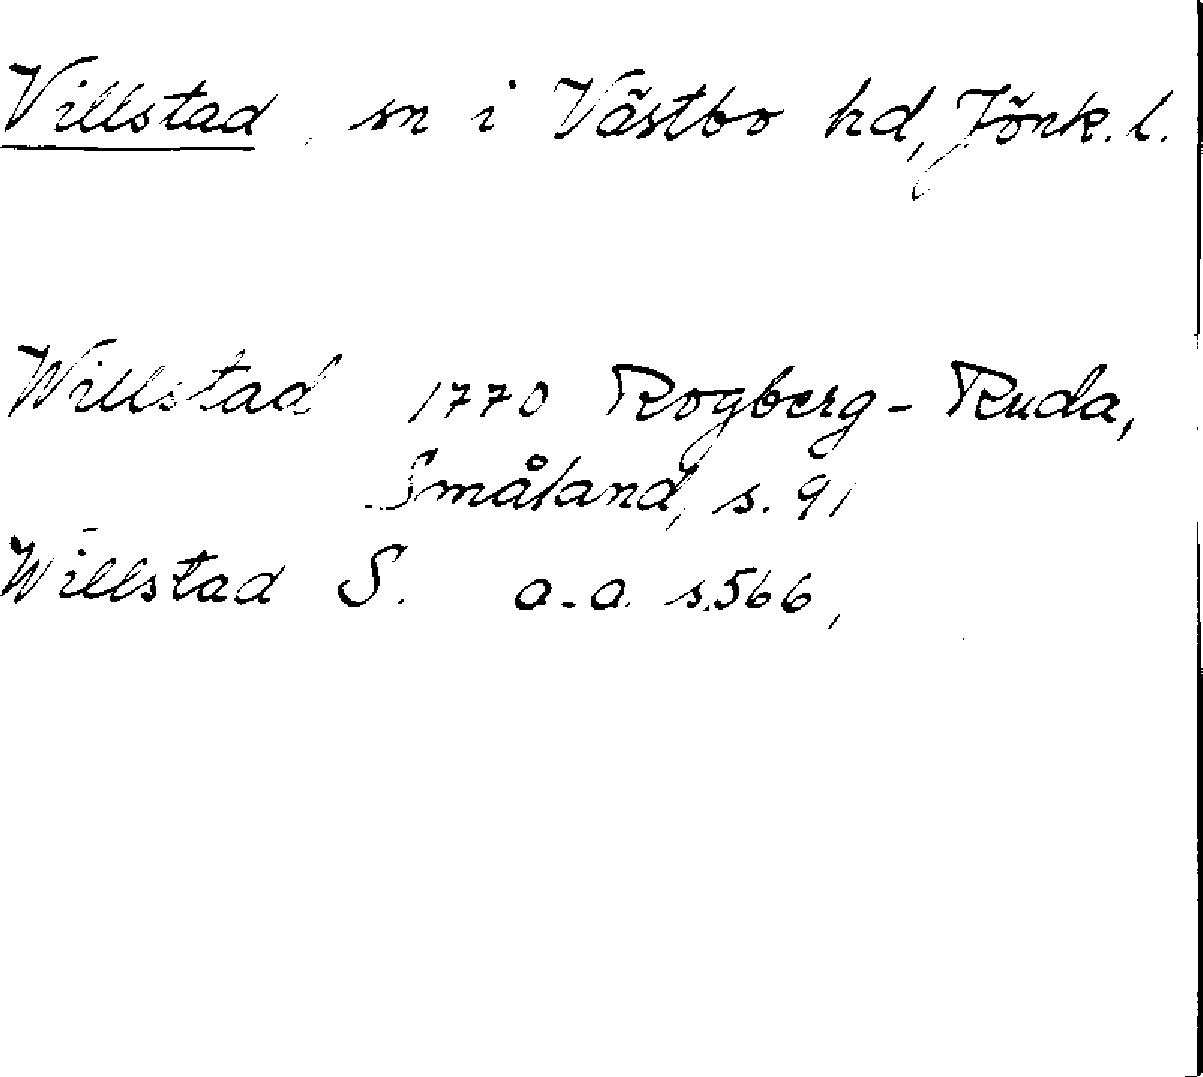 Villstad, sn i Västbo hd, Jönk. l.
Willstad 1770 Rogberg-Ruda,
Småland, s. 91
Willstad S. a.a. s.566,